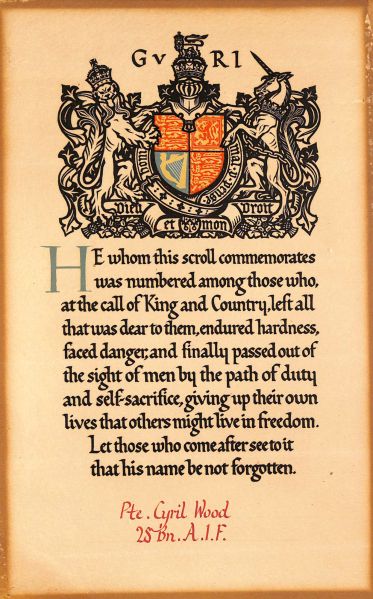 G V R I
Dieu et mon Droit
HE whom this scroll commemorates
was numbered among those who,
at the call of King and Country, left all
that was dear to them, endured hardness,
faced danger, and finally passed out of
the sight of men by the path of duty
and self-sacrifice, giving up their own
lives that others might live in freedom.
Let those who come after see to it
that his name be not forgotten.
Pte. Cyril Wood
25 Bn. A.I.F.